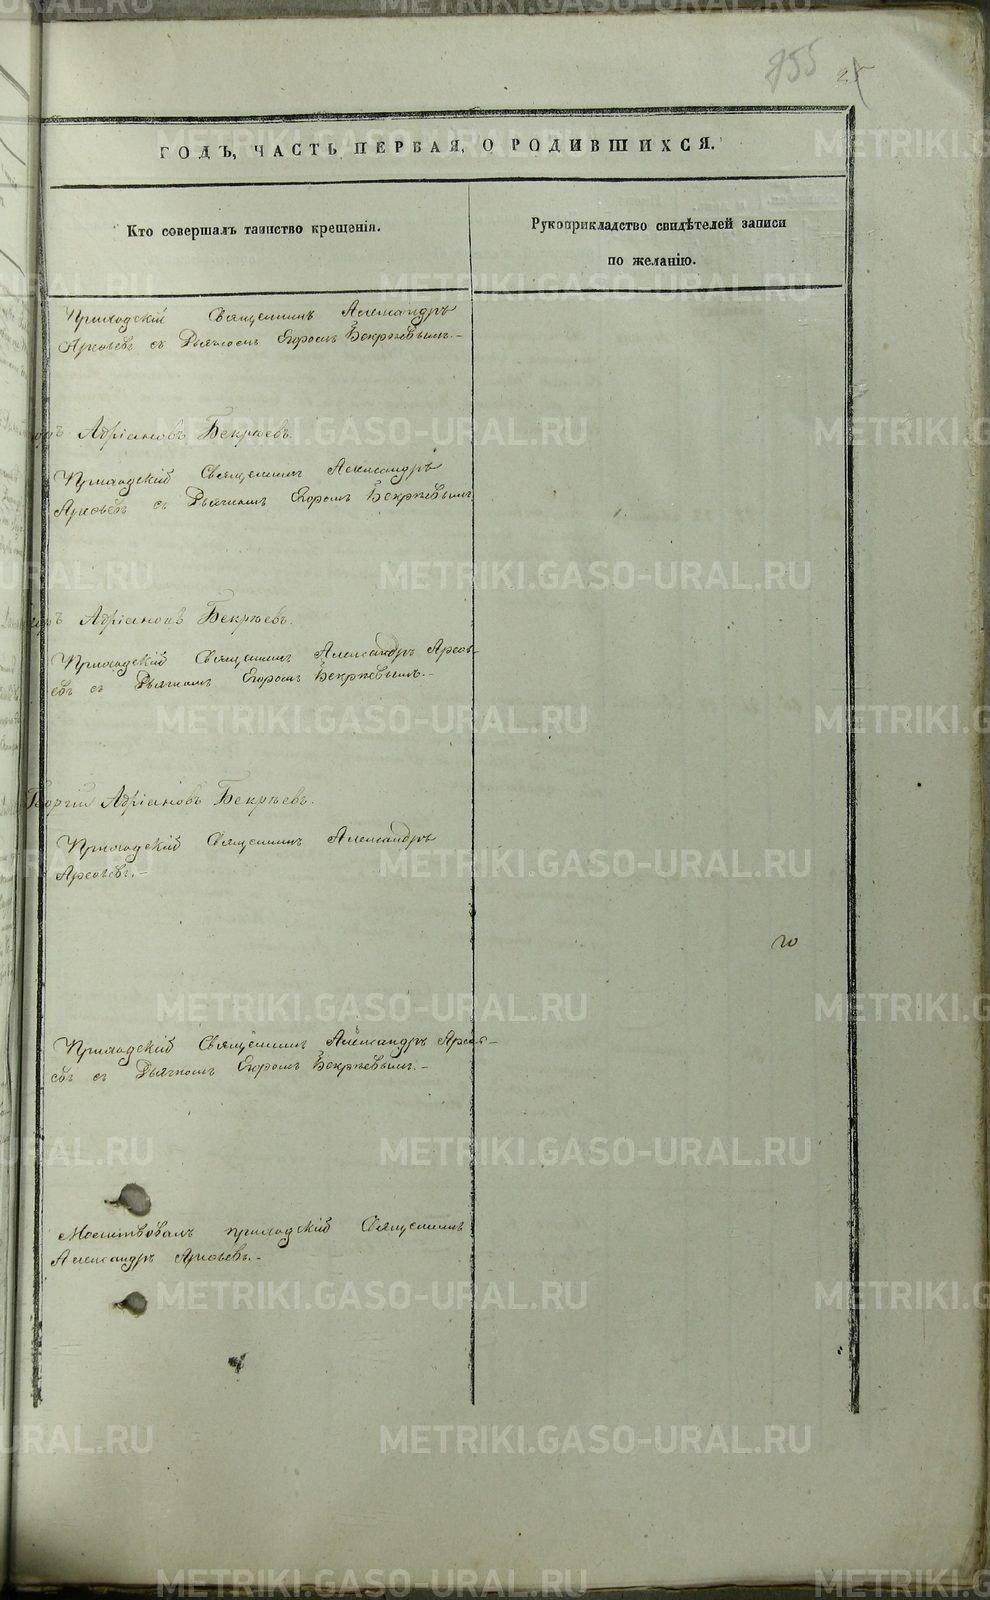 755 25
ГОДЪ, ЧАСТЬ ПЕРВАЯ, О РОДИВШИХСЯ.
Кто совершалъ таинство крещенія.
Рукоприкладство свидѣтелей записи
по желанію.
Приходскій Священникъ Александръ
Арсѣевъ съ Дьячкомъ Егоромъ Бекрѣевымъ.–
Адріановъ Бекрѣевъ.
Приходскій Священникъ Александръ
Арсѣевъ съ Дьячкомъ Егоромъ Бекрѣевымъ
Адріановъ Бекрѣевъ.
Приходскій Священникъ Александръ Арсѣ-
евъ съ Дьячкомъ Егоромъ Бекрѣевымъ.–
Георгій Адріановъ Бекрѣевъ.
Приходскій Священникъ Александръ
Арсѣевъ.–
Приходскій Священникъ Александръ Арсѣ-
евъ съ Дьячкомъ Егоромъ Бекрѣевымъ.–
Молитвовалъ приходскій Священникъ
Александръ Арсѣевъ.–
METRIKI.GASO-URAL.RU